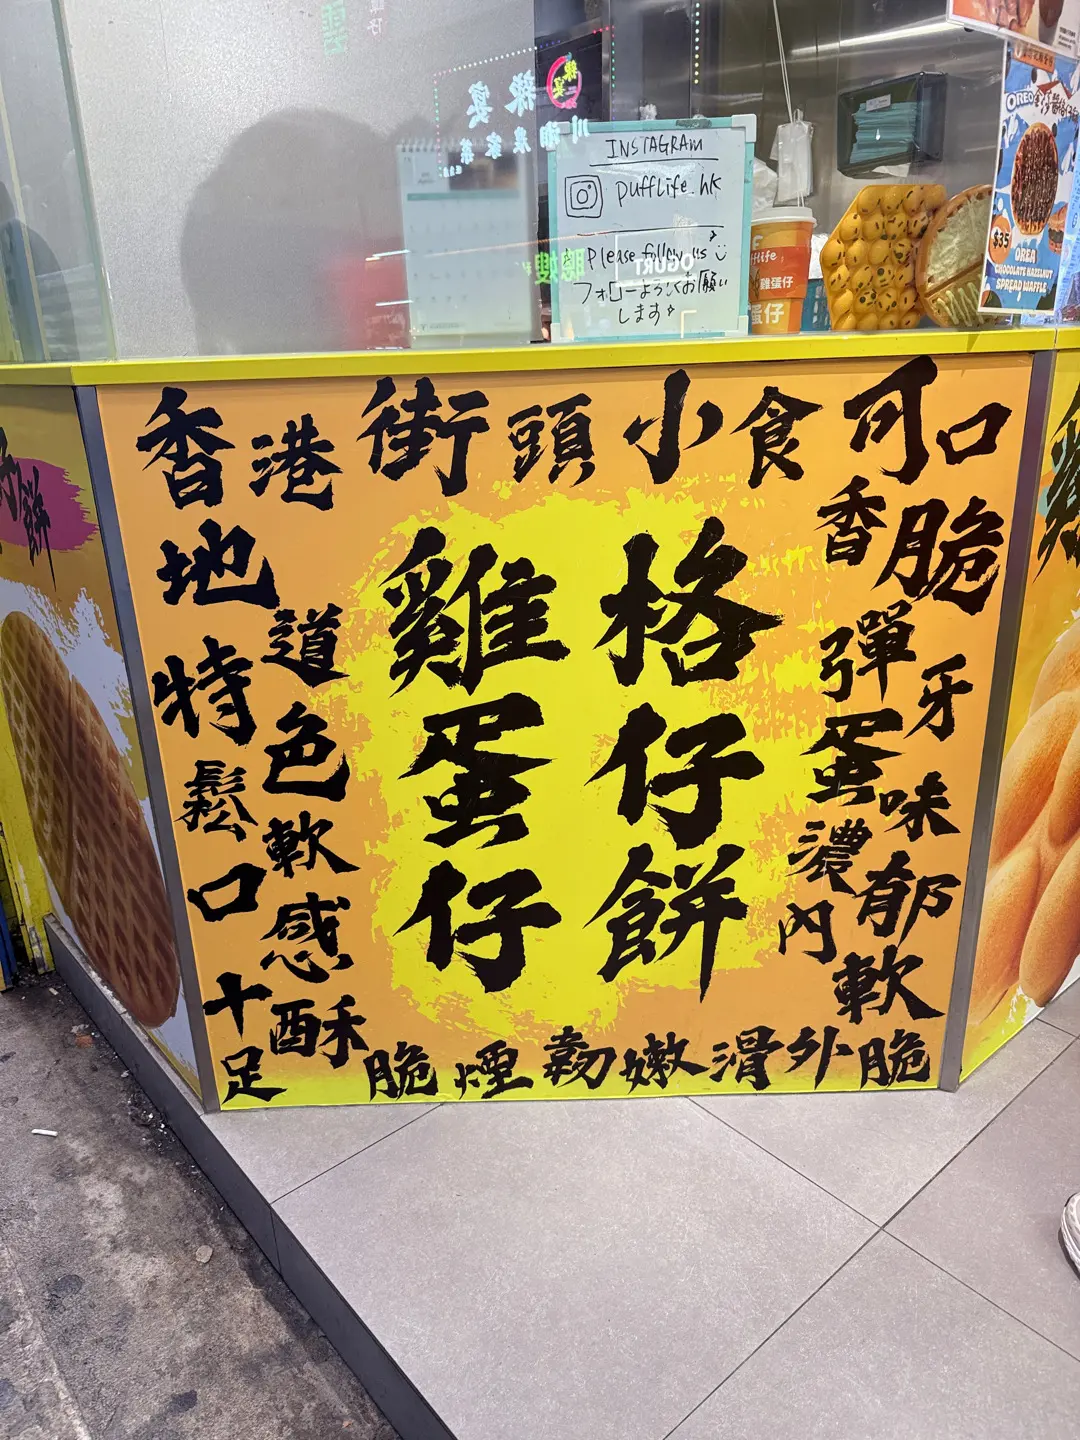 INSTAGRAM
pufflife.hk
Please follow us
フォローよろしくお願い
します
OGURT
辣宴
雞蛋仔
蛋仔
OREO
$35
OREA
CHOCOLATE HAZELNUT
SPREAD WAFFLE
香港街頭小食可口
香脆
彈牙
蛋味
濃郁
內軟
外脆
雞蛋仔
格仔餅
地道
特色
鬆軟
口感
十足
酥脆煙韌嫩滑
餅